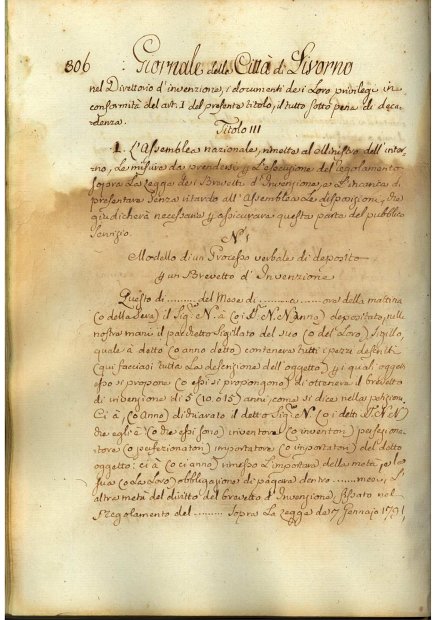 306 Giornale della Città di Livorno
nel Direttorio d'invenzione, i documenti dei Loro privilegi in
conformità del art. I del presente titolo, il tutto sotto pena di deca-
denza.
Titolo III
1. L'Assemblea nazionale, rimetta al Ministro dell'inter-
no, Le misure da prendersi p L'esecuzione del Regolamento
sopra La Legge dei Brevetti d'Invenzione, e L'incarica di
presentare Senza ritardo all'Assemblea Le disposizioni, che
giudicherà necessarie p assicurare questa parte del pubblico
Servizio.
N.° 1
Modello di un Processo verbale di deposito
p un Brevetto d'Invenzione
Questo dì ......... del Mese di ....... a ...... ore della mattina
(o della Sera) il Sig.e N. à (o i S.i N. N. anno) depositato, nelle
nostre mani il pacchetto Sigillato del suo (o del Loro) Sigillo,
quale à detto (o anno detto) contenere tutti i pezzi descritti
(qui facciasi tutta La descrizione dell'oggetto) p i quali ogget
esso si propone (o essi si propongono) di ottenere il brevetto
di invenzione di 5 (10, o 15) anni, come si dice nella petizion.
Ci à, (o Anno) dichiarato il detto Sig.e N. (o i detti S.i N. N.)
che egli è (o che essi sono) inventore (o inventori) perfezione
tore (o perfezionatori) importatore (o importatori) del detto
oggetto: ci à (o ci anno) rimesso L'importare della metà, e la
sua (o La Loro) obbligazione di pagare dentro ........ mesi, L'
altra metà del diritto del brevetto d'Invenzione, fissato nel
Regolamento del .......... sopra La Legge de 7 Gennaio 1791,